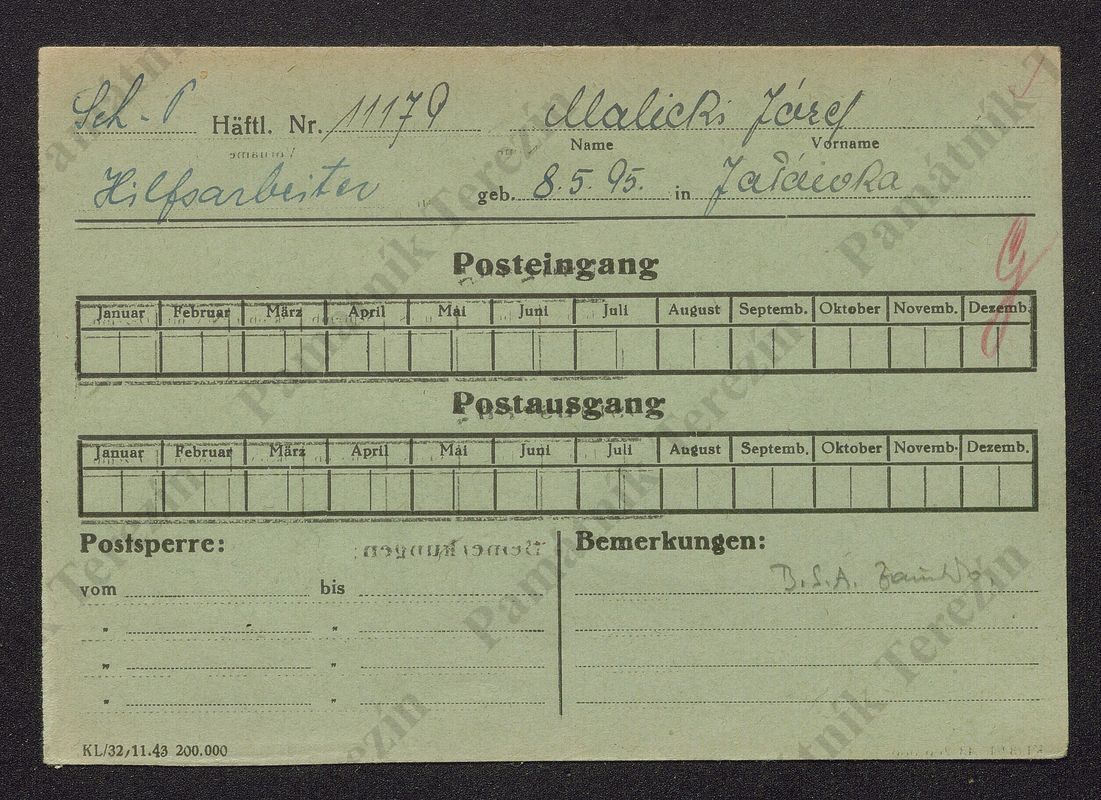 Sch.-P Häftl. Nr. 11179 Malicki Józef
Name Vorname
Hilfsarbeiter geb. 8.5.95. in
Posteingang
Januar Februar März April Mai Juni Juli August Septemb. Oktober Novemb. Dezemb.
Postausgang
Januar Februar März April Mai Juni Juli August Septemb. Oktober Novemb. Dezemb.
Postsperre: Bemerkungen:
vom bis
B.S.A.
" "
" "
" "
KL/32, 11.43 200.000
Památník Terezín